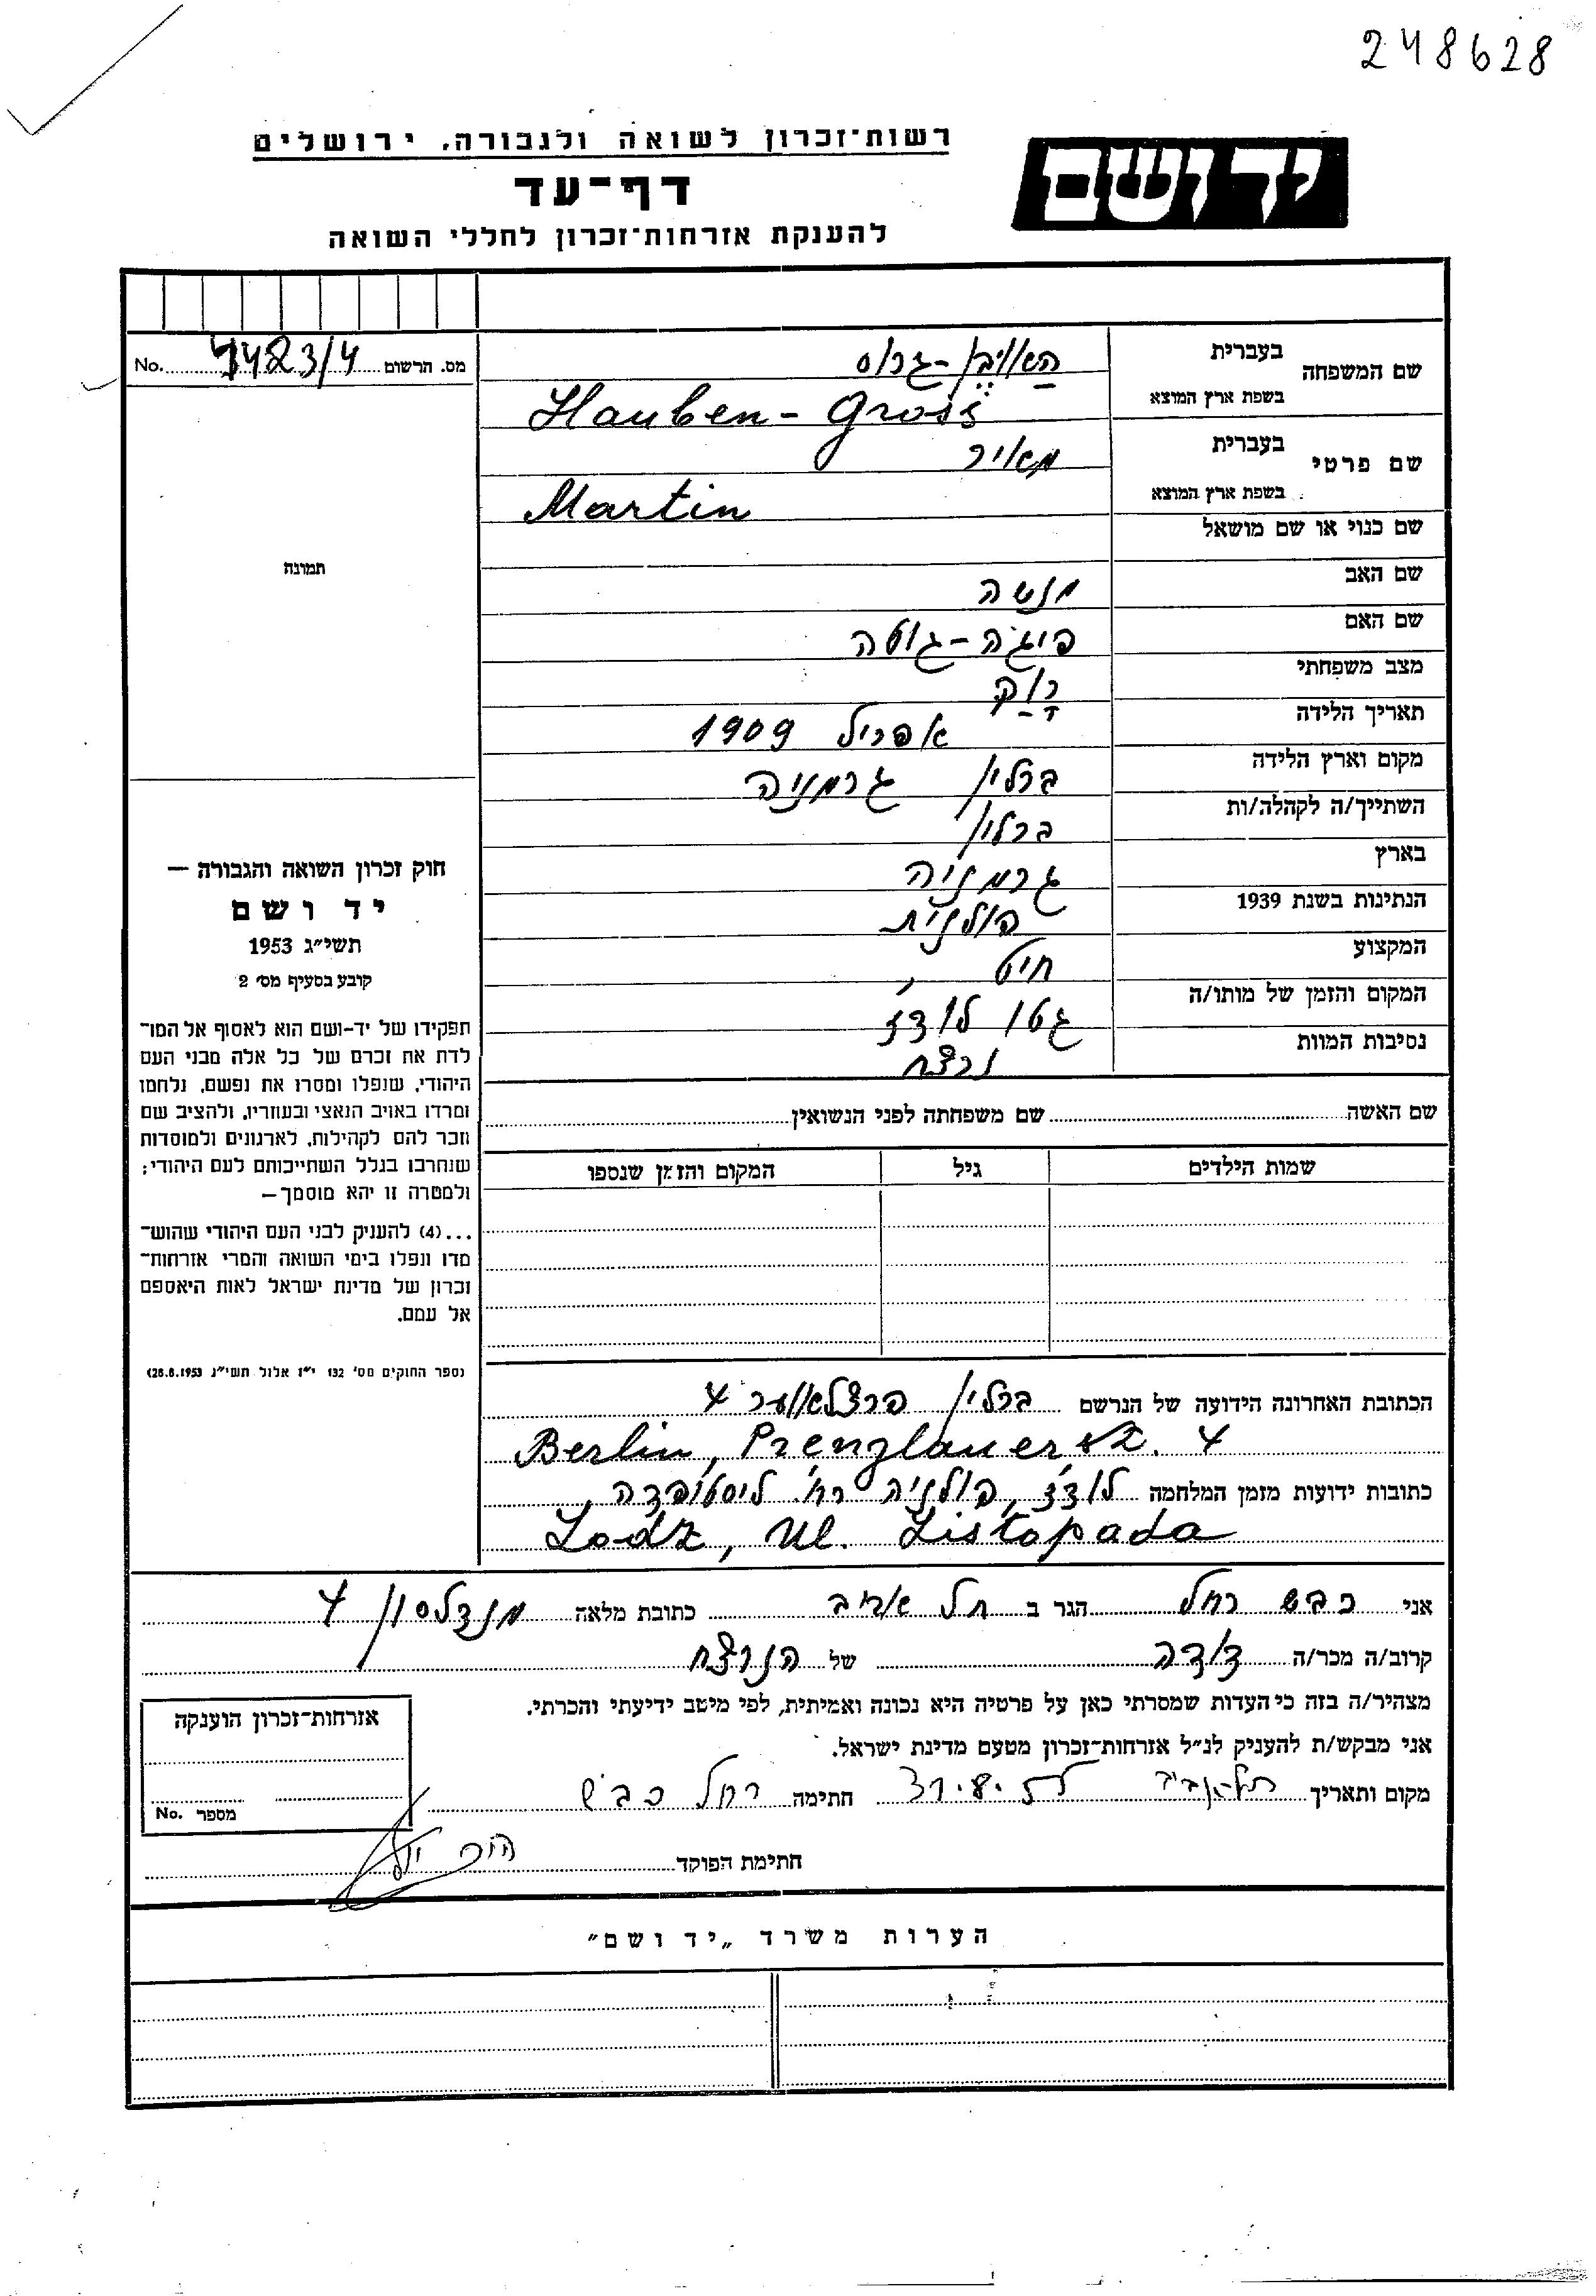 248628
רשות־זכרון לשואה ולגבורה, ירושלים
יד ושם
דף־עד
להענקת אזרחות־זכרון לחללי השואה
מס. הרשום 7483/4 No.
שם המשפחה בעברית האויבן-גרוס
בשפת ארץ המוצא Hauben-Gross
שם פרטי בעברית מאיר
בשפת ארץ המוצא Martin
שם כנוי או שם מושאל
תמונה
שם האב מנשה
שם האם פיגה-גוטה
מצב משפחתי רוק
תאריך הלידה אפריל 1909
מקום וארץ הלידה ברלין גרמניה
השתייך/ה לקהלה/ות ברלין
בארץ גרמניה
הנתינות בשנת 1939 פולנית
המקצוע חייט
המקום והזמן של מותו/ה גטו לודז
נסיבות המוות נרצח
שם האשה שם משפחתה לפני הנשואין
שמות הילדים גיל המקום והזמן שנספו
חוק זכרון השואה והגבורה —
יד ושם
תשי״ג 1953
קובע בסעיף מס׳ 2
תפקידו של יד-ושם הוא לאסוף אל המו־
לדת את זכרם של כל אלה מבני העם
היהודי, שנפלו ומסרו את נפשם, נלחמו
ומרדו באויב הנאצי ובעוזריו, ולהציב שם
וזכר להם לקהילות, לארגונים ולמוסדות
שנחרבו בגלל השתייכותם לעם היהודי;
ולמטרה זו יהא מוסמך—
...(4) להעניק לבני העם היהודי שהוש־
מדו ונפלו בימי השואה והמרי אזרחות־
זכרון של מדינת ישראל לאות היאספם
אל עמם.
(ספר החוקים מס׳ 132 י״ז אלול תשי״ג 28.8.1953)
הכתובת האחרונה הידועה של הנרשם ברלין פרצלאוער 4
Berlin, Prenzlauer str. 4
כתובות ידועות מזמן המלחמה לודז, פולניה רח. ליסטופדה,
Lodz, Ul. Listopada
אני כבש רחל הגר ב תל אביב כתובת מלאה מנדלסון 4
קרוב/ה מכר/ה דודה של הנרצח
מצהיר/ה בזה כי העדות שמסרתי כאן על פרטיה היא נכונה ואמיתית, לפי מיטב ידיעתי והכרתי.
אני מבקש/ת להעניק לנ״ל אזרחות־זכרון מטעם מדינת ישראל.
מקום ותאריך תל-אביב חתימה רחל כבש
חתימת הפוקד
אזרחות־זכרון הוענקה
מספר No.
הערות משרד „יד ושם״